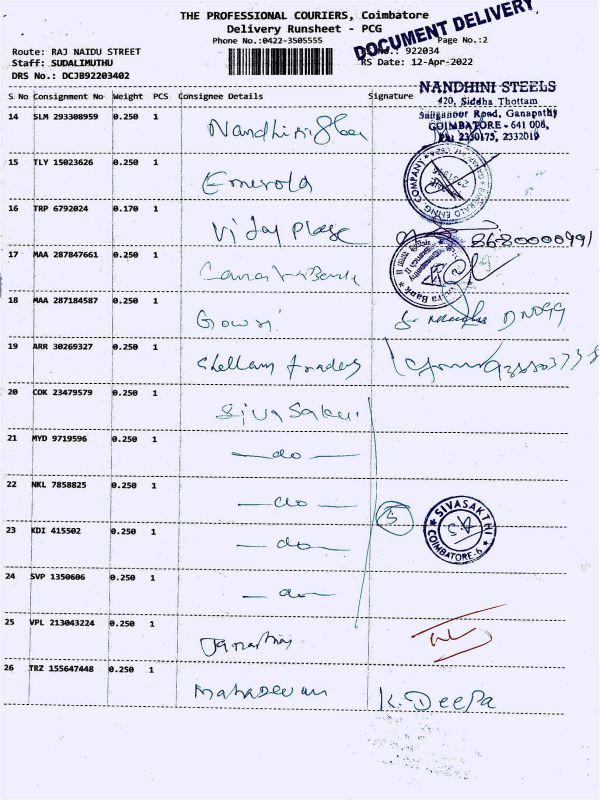 THE PROFESSIONAL COURIERS, Coimbatore
Delivery Runsheet - PCG
Phone No.:0422-3505555
Page No.:2
DOCUMENT DELIVERY
Route: RAJ NAIDU STREET
922034
Staff: SUDALIMUTHU
RS Date: 12-Apr-2022
DRS No.: DCJB92203402
S No Consignment No Weight PCS Consignee Details Signature
NANDHINI STEELS
420, Siddha Thottam
Road, Ganapathy
COIMBATORE - 641 006,
2330175, 2332019
14 SLM 293308959 0.250 1 Nandhini
15 TLY 15023626 0.250 1
16 TRP 6792024 0.170 1 Vijay
17 MAA 287847661 0.250 1 Canara Bank
18 MAA 287184587 0.250 1 Gowri
19 ARR 30269327 0.250 1 Chellam traders
20 COK 23479579 0.250 1
21 MYD 9719596 0.250 1 — do —
22 NKL 7858825 0.250 1 — do —
5
SIVASAKTHI
COIMBATORE-6
23 KDI 415502 0.250 1 — do —
24 SVP 1350606 0.250 1 — do —
25 VPL 213043224 0.250 1
26 TRZ 155647448 0.250 1 Mahadevan K. Deepa